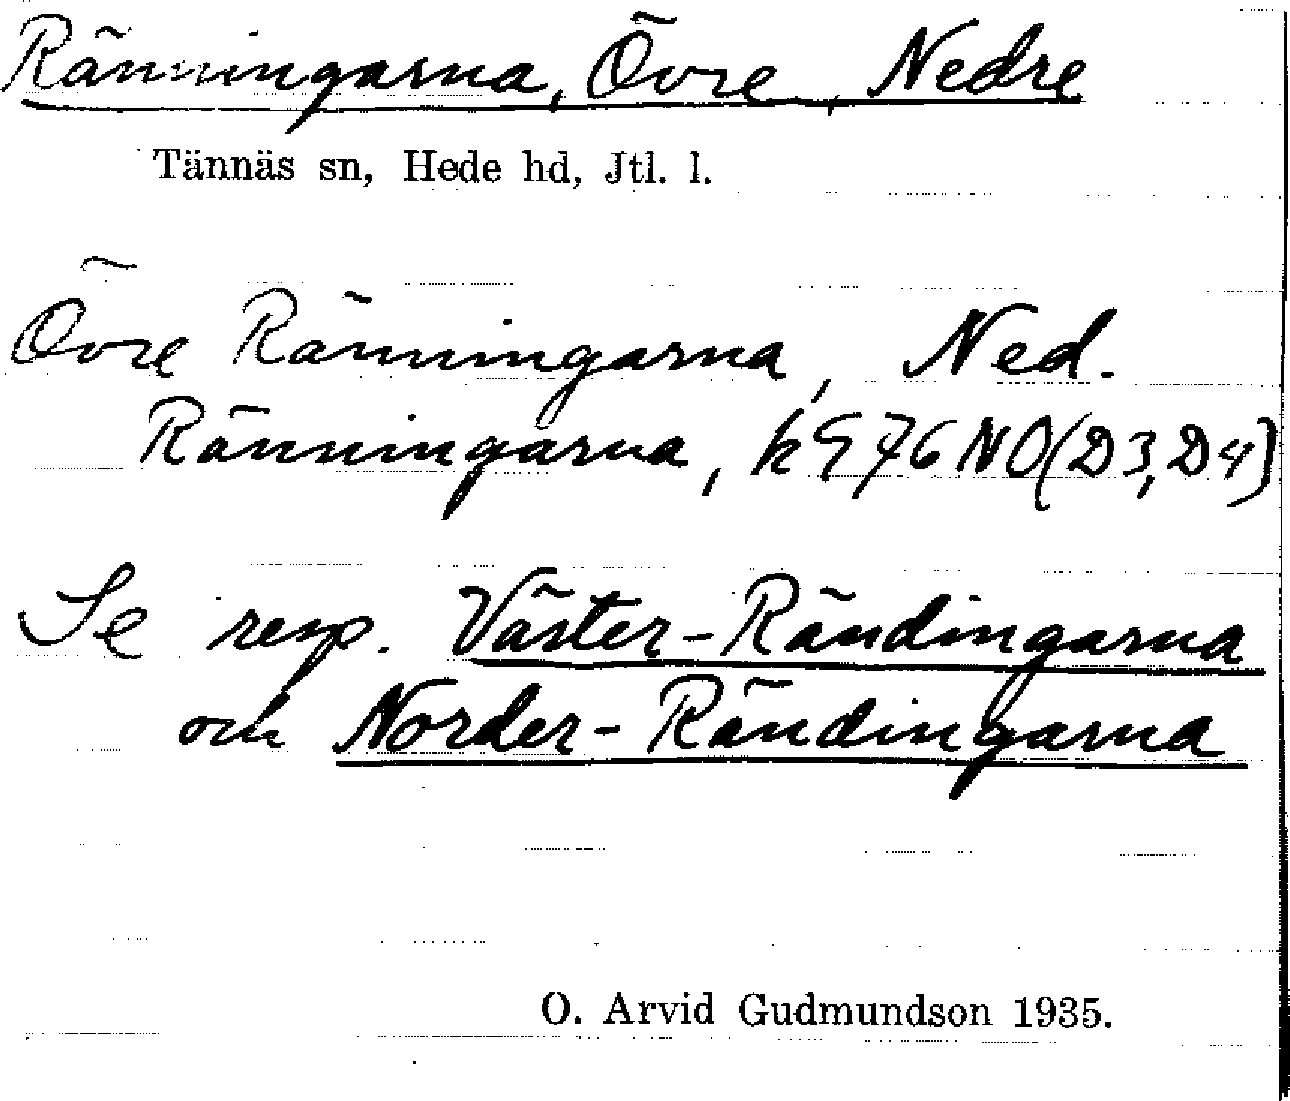 Ränningarna, Övre, Nedre
Tännäs sn, Hede hd, Jtl. l.
Övre Ränningarna, Ned.
Ränningarna, k G 76 NO (D3, D4)
Se resp. Väster-Rändingarna
och Norder-Rändingarna
O. Arvid Gudmundson 1935.